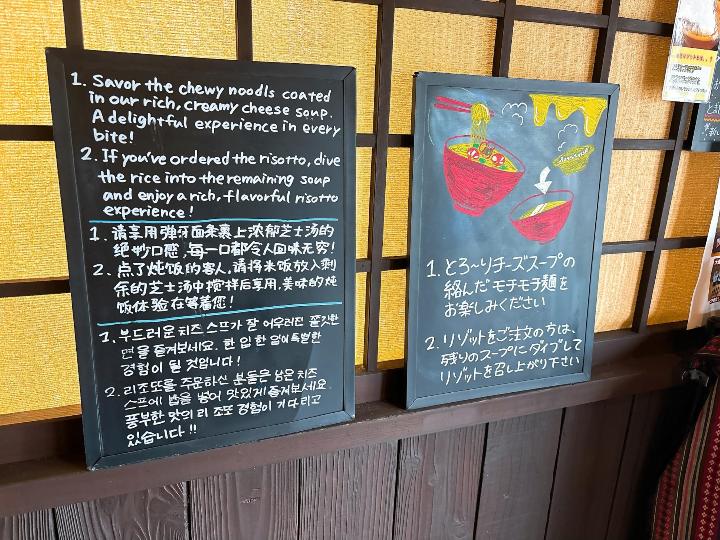 1. Savor the chewy noodls coated
in our rich, creamy cheese soup.
A delightful experience in every
bite!
2. If you've ordered the risotto, dive
the rice into the remaining soup
and enjoy a rich, flavorful risotto
experience!
1. 请享用弹牙面条裹上浓郁芝士汤的
绝妙口感,每一口都令人回味无穷!
2. 点了炖饭的客人,请将米饭放入剩
余的芝士汤中搅拌后享用,美味的炖
饭体验在等着您!
1. 부드러운 치즈 스프가 잘 어우러진 쫄깃한
면을 즐겨보세요. 한 입 한 입이 특별한
경험이 될 것입니다!
2. 리조또를 주문하신 분들은 남은 치즈
스프에 밥을 넣어 맛있게 즐겨보세요.
풍부한 맛의 리조또 경험이 기다리고
있습니다!!
1. とろ〜りチーズスープの
絡んだモチモチ麺を
お楽しみください
2. リゾットをご注文の方は、
残りのスープにダイブして
リゾットを召し上がり下さい